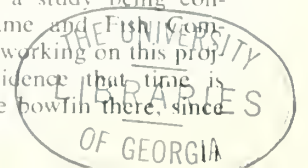 a study being con-
ame and Fish Com-
working on this proj-
idence that time is
e bowfin there, since
THE UNIVERSITY
LIBRARIES
OF GEORGIA